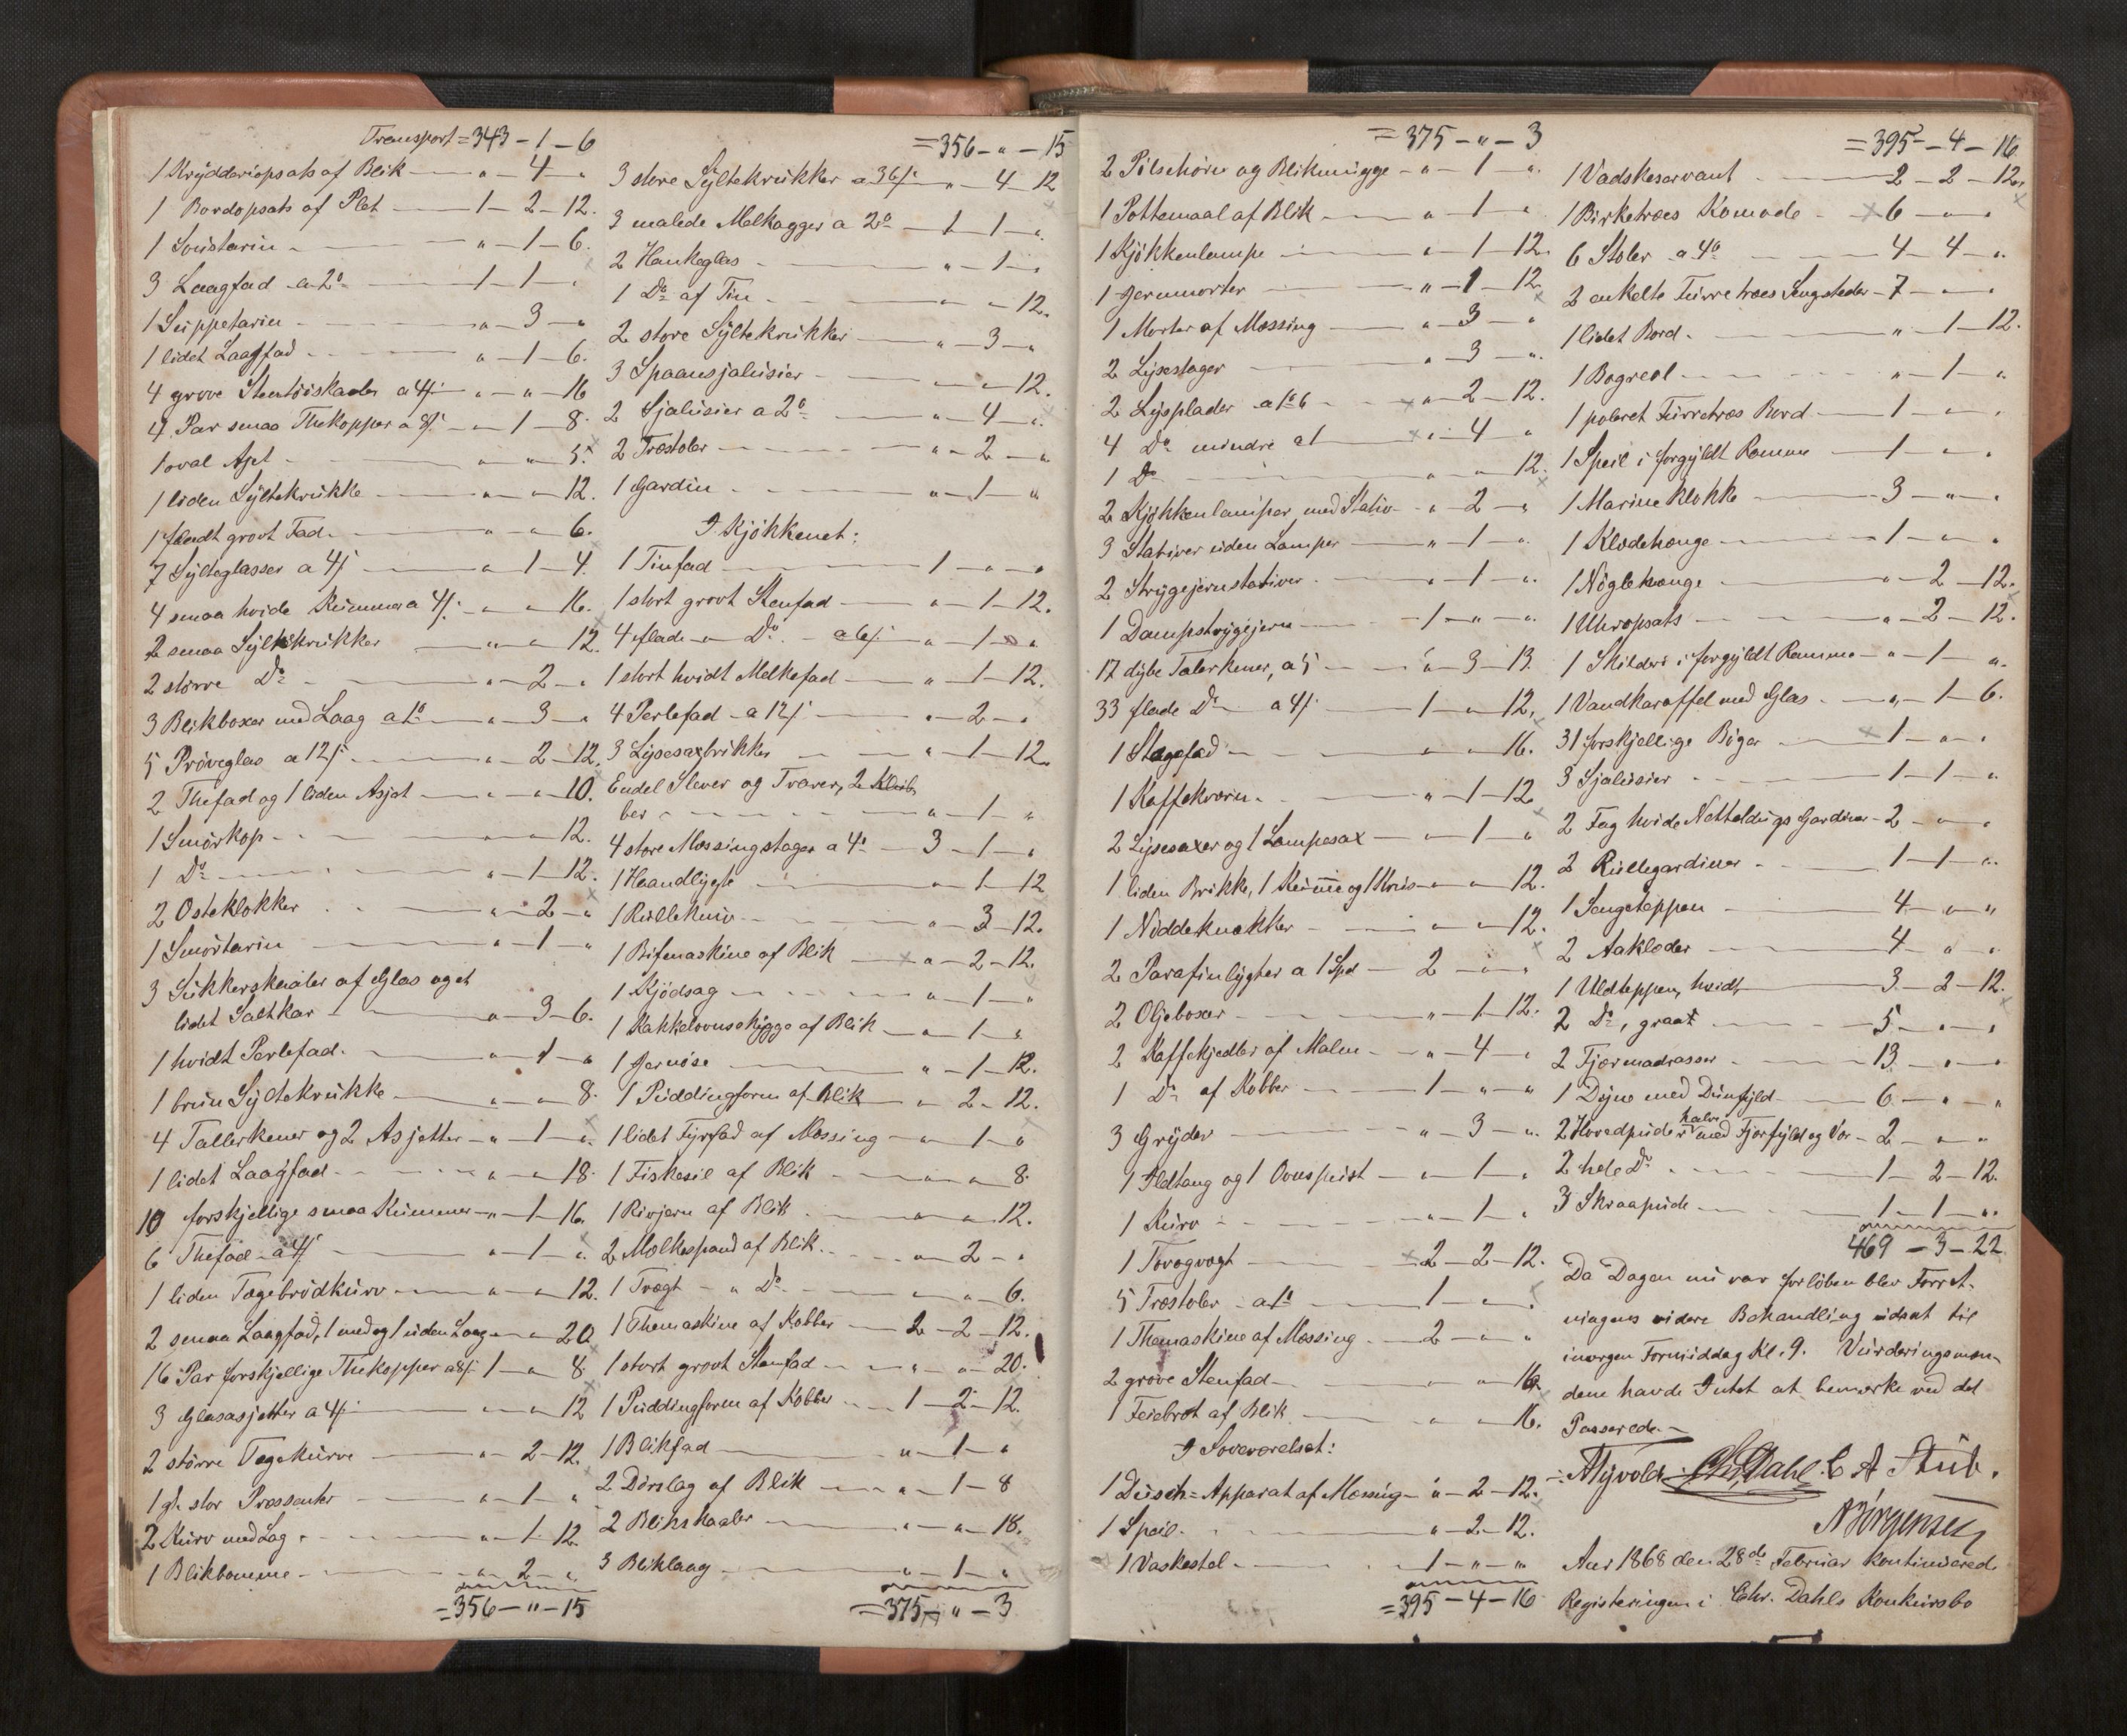 Transport = 343 - 1 - 6
1 Krydderiopsats af Blik - " - 4 - "
1 Bordopsats af Plet - 1 - 2 - 12.
1 Soustarin - " - 1 - 6.
3 Laagfad a 2o - 1 - 1 - "
1 Suppetarin - " - 3 - "
1 lidet Laagfad - " - 1 - 6.
4 grove Stentöiskaaler a 4/ - " - " - 16
4 Par smaa Thekopper a 8/ - " - 1 - 8.
1 oval Asjet - " - " - 5.
1 liden Syltekrukke - " - " - 12.
1 fladt grovt Fad - " - " - 6.
7 Sylteglasser a 4/ - " - 1 - 4.
4 smaa hvide Kummer a 4/ - " - " - 16.
2 smaa Syltekrukker - " - " - 12.
2 större Do - " - 2 - "
3 Blikboxer med Laag a 1o - " - 3 - "
5 Pröveglas a 12/ - " - 2 - 12.
2 Thefad og 1 liden Asjet - " - " - 10.
1 Smörkop - " - " - 12.
1 Do - " - 1 - 12.
2 Osteklokker - " - 2 - "
1 Smörtarin - " - 1 - "
3 Sukkerskaaler af Glas og et
lidet Saltkar - " - 3 - 6.
1 hvidt Perlefad - " - 1 - "
1 brun Syltekrukke - " - " - 8.
4 Tallerkener og 2 Asjetter - " - 1 - "
1 lidet Laagfad - " - " - 18.
10 forskjellige smaa Kummer - " - 1 - 16.
6 Thefad a 4/ - " - 1 - "
1 liden Tægebrödkurv - " - " - 12.
2 smaa Laagfad, 1 med og 1 uden Laag - " - " - 20
16 Par forskjellige Thekopper a 8/ - 1 - " - 8
3 Glasasjetter a 4/ - " - " - 12
2 större Tægekurve - " - 2 - 12.
1 gl. stor Præssenter - " - 1 - "
2 Kurv med Lag - " - 1 - 12.
1 Blikbomme - " - 2 - "
= 356 - " - 15
= 356 - " - 15
3 store Syltekrukker a 36/ - " - 4 - 12
3 malede Melkagger a 2o - 1 - 1 - "
2 Hankeglas - " - 1 - "
1 Do af Tin - " - " - 12.
2 store Syltekrukker - " - 3 - "
3 Spaansjalusier - " - " - 12.
2 Sjalusier a 2o - " - 4 - "
2 Træstoler - " - 2 - "
1 Gardin - " - 1 - "
I Kjökkenet:
1 Tinfad - 1 - " - "
1 stort grovt Stenfad - " - 1 - 12.
4 flade " Do - a 6/ - " - 1 - "
1 stort hvidt Melkefad - " - 1 - 12.
4 Perlefad a 12/ - " - 2 - "
3 Lysesaxbrikker - " - 1 - 12.
Endel Slever og Tvarer, 2
ber - " - 1 - "
4 store Messingstager a 4o - 3 - 1 - "
1 Haandlygte - " - 1 - 12
1 Rullekniv - " - 3 - 12.
1 Bifmaskine af Blik - " - 2 - 12.
1 Kjödsag - " - 1 - "
1 Kakkelovnsskygge af Blik - " - 1 - "
1 Jernöse - " - 1 - 12.
1 Puddingform af Blik - " - 2 - 12.
1 lidet Fyrfad af Messing - " - 1 - "
1 Fiskesil af Blik - " - " - 8.
1 Rivjern af Blik - " - " - 12.
2 Melkespand af Blik - " - 2 - "
1 Tragt - " Do - " - " - 6.
1 Themaskine af Kobber - 2 - 2 - 12.
1 stort grovt Stenfad - " - " - 20.
1 Puddingform af Kobber - 1 - 2 - 12.
1 Blikfad - " - 1 - "
2 Dörslag af Blik - " - 1 - 8
2 Blikskaaler - " - " - 18.
3 Bliklaag - " - 1 - "
= 375 - " - 3
= 375 - " - 3
2 Pölsehorn og Blikmugge - " - 1 - "
1 Pottemaal af Blik - " - 1 - "
1 Kjökkenlampe - " - 1 - 12.
1 Jernmorter - " - 1 - 12.
1 Morter af Messing - " - 3 - "
2 Lysestager - " - 3 - "
2 Lysplader a 1o 6 - " - 2 - 12.
4 Do mindre a 1 - " - 4 - "
1 Do - " - " - 12.
2 Kjökkenlamper med Stativ - " - 2 - "
3 Stativer uden Lamper - " - 1 - "
2 Strygejernstativer - " - 1 - "
1 Dampstrygejern - 1 - " - "
17 dybe Talerkener, a 5 - " - 3 - 13.
33 flade Do a 4/ - 1 - " - 12.
1 Stegefad - " - " - 16.
1 Kaffekværn - " - 1 - 12
2 Lysesaxer og 1 Lampesax - " - 1 - "
1 liden Brikke, 1 Kumme og 1 Krus - " - " - 12.
1 Nöddeknækker - " - " - 12.
2 Parafinlygter a 1 Spd - 2 - " - "
2 Oljeboxer - " - 1 - 12.
2 Kaffekjedler af Malm - " - 4 - "
1 Do af Kobber - 1 - " - "
3 Gryder - " - 3 - "
1 Ildtang og 1 Ovnspist - " - 1 - "
1 Kurv - " - 1 - "
1 Torvgvægt - 2 - 2 - 12.
5 Træstoler a 1o - 1 - " - "
1 Themaskine af Messing - 2 - " - "
2 grove Stenfad - " - " - 16.
1 Feiebret af Blik - " - " - 16.
I Soveværelset:
1 Dusch-Apparat af Messing - " - 2 - 12.
1 Speil - " - 2 - 12.
1 Vaskestel - 1 - " - "
= 395 - 4 - 16
= 395 - 4 - 16
1 Vadskeservant - 2 - 2 - 12.
1 Birketræs Komode - 6 - " - "
6 Stoler a 4o - 4 - 4 - "
2 enkelte Furretræes Sengsteder - 7 - " - "
1 lidet Bord - " - 1 - 12.
1 Bogreol - " - 1 - "
1 poleret Furretræs Bord - 1 - " - "
1 Speil i forgyldt Ramme - 1 - " - "
1 Marineklokke - 3 - " - "
1 Klædehænge - 1 - " - "
1 Nöglehænge - " - 2 - 12.
1 Uhropsats - " - 2 - 12.
1 Skilderi i forgyldt Ramme - " - 1 - "
1 Vandkaraffel med Glas - " - 1 - 6.
31 forskjellige Böger - 1 - " - "
3 Sjalusier - 1 - 1 - "
2 Fag hvide Netteldugs Gardiner - 2 - " - "
2 Rullegardiner - 1 - 1 - "
1 Sengeteppen - 4 - " - "
2 Aaklæder - 4 - " - "
1 Uldteppen, hvidt - 3 - 2 - 12.
2 Do, graat - 5 - " - "
2 Fjærmadrasser - 13 - " - "
1 Dyne med Dunfyld - 6 - " - "
2 Hovedpuder halve med Fjærfyld og Vor - 2 - " - "
2 hele Do - 1 - 2 - 12.
3 Skraapude - 1 - 1 - "
469 - 3 - 22
Da Dagen nu var forlöben blev Forret-
ningens videre Behandling udsat til
imorgen Formiddag Kl. 9. Vurderingsmæn-
dene havde Intet at bemærke ved det
Passerede.
A Myvold. Chr. Dahl. C A Stub.
N Jörgensen
Aar 1868 den 28de Februar kontinuered
Registeringen i Chr. Dahls Konkursbo